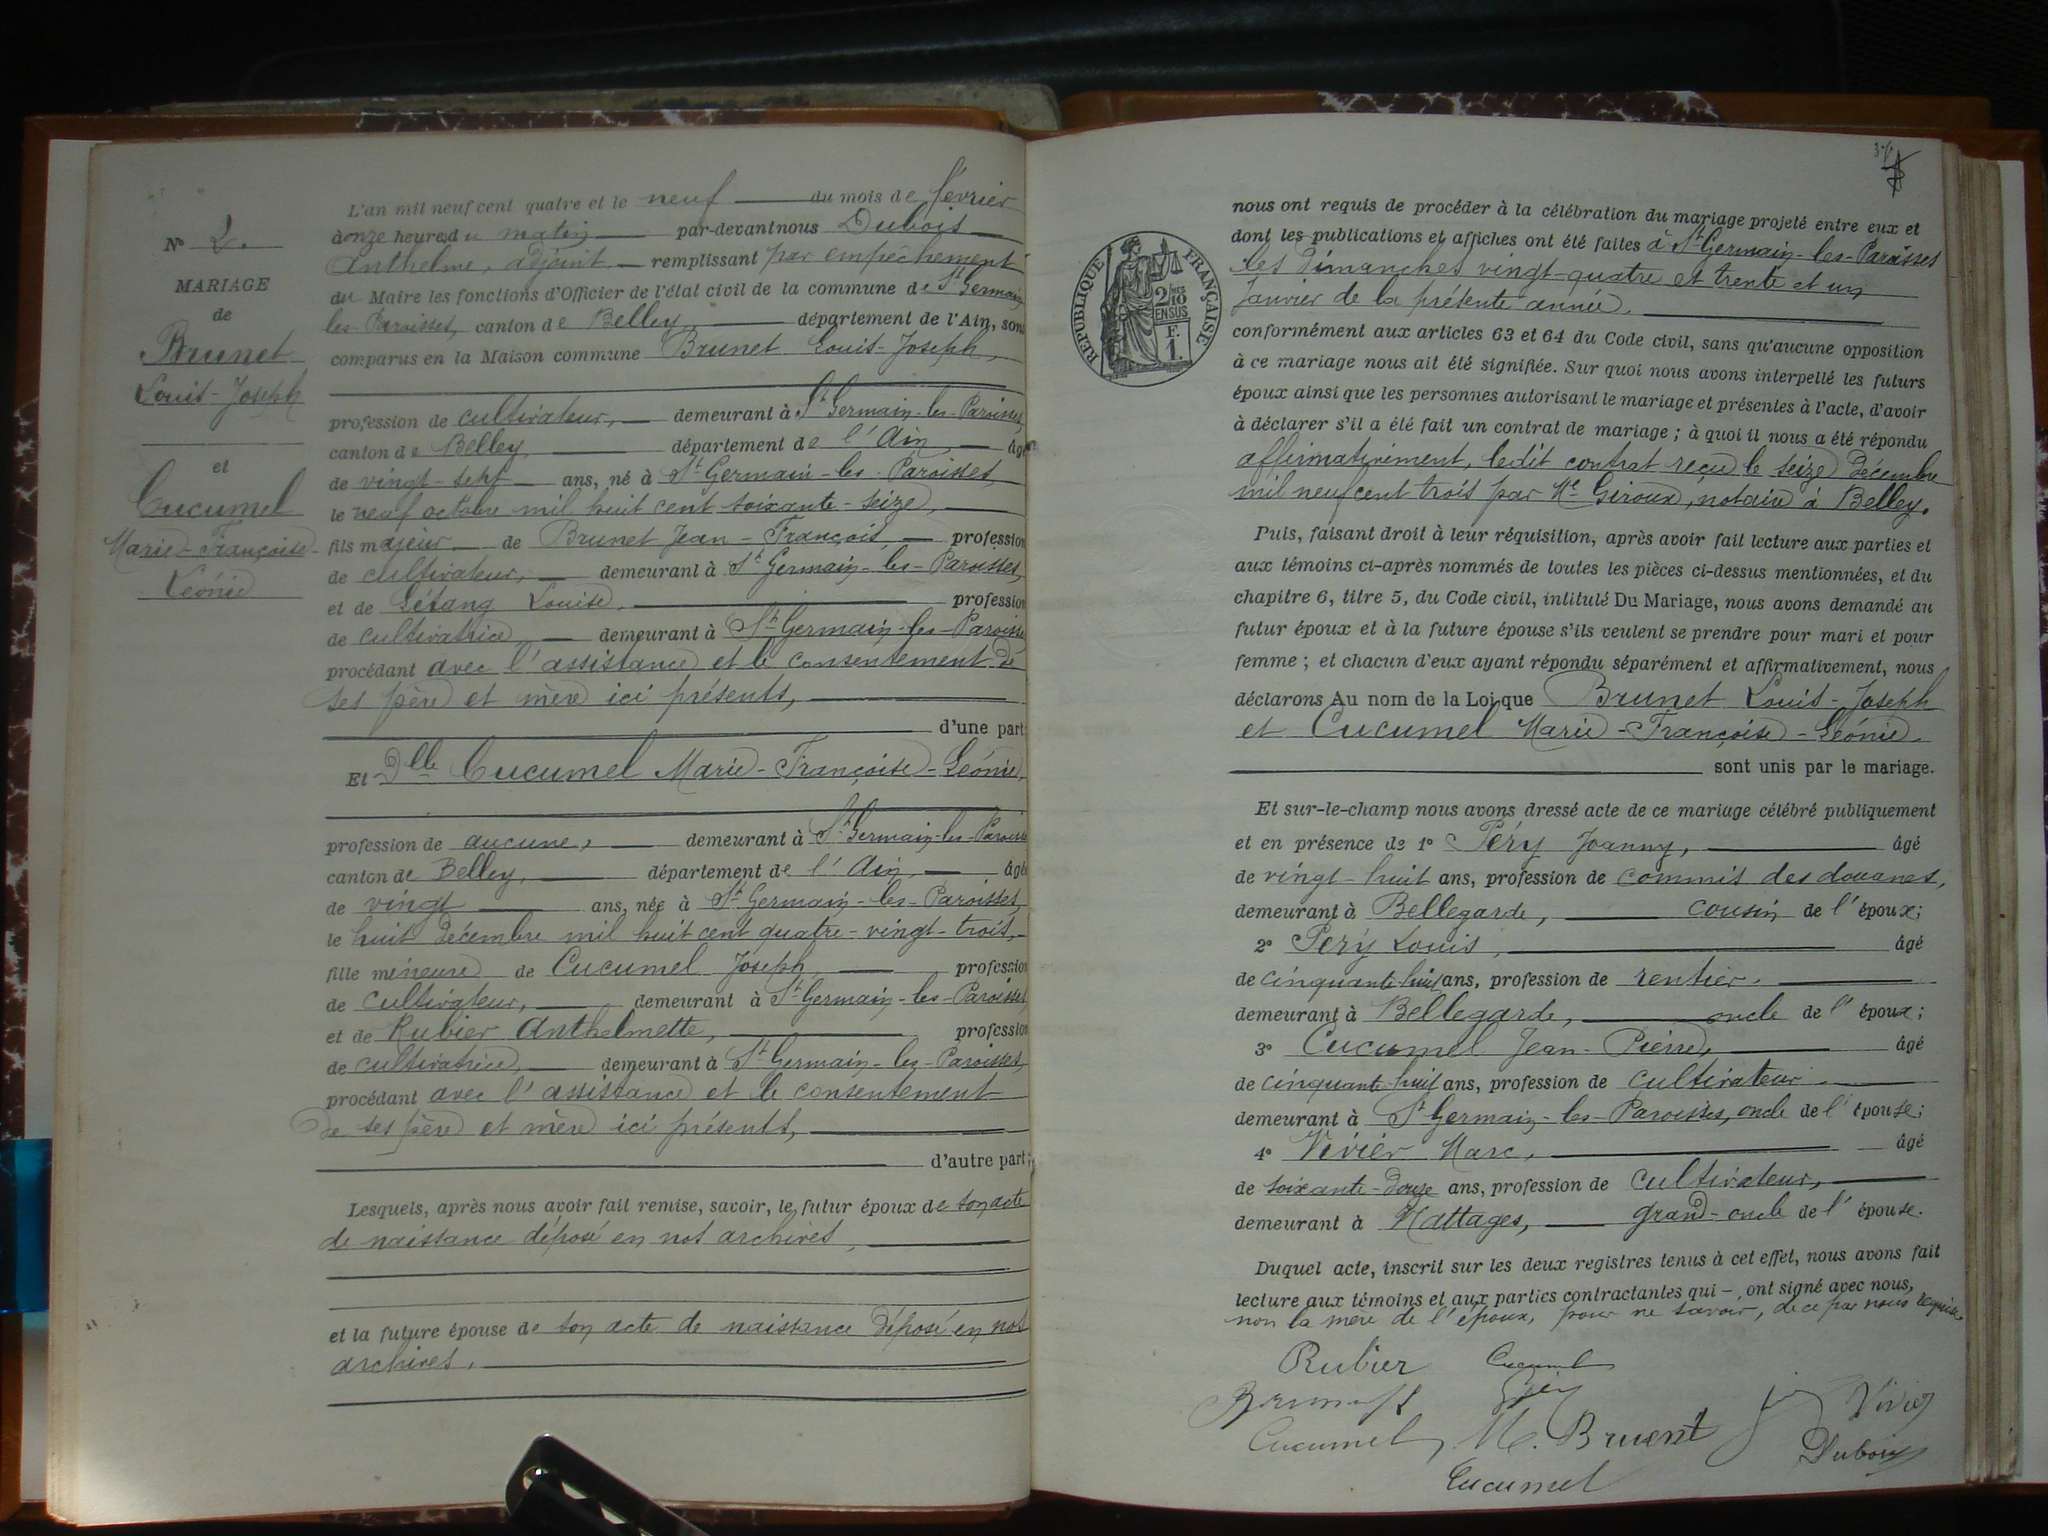 N° 2.
MARIAGE
de
Brunet
Louis-Joseph
et
Cucumel
Marie-Françoise-
Léonie
L'an mil neuf cent quatre et le neuf du mois de février
à onze heures du matin par-devant nous Dubois
Anthelme, adjoint remplissant par empêchement
du Maire les fonctions d'Officier de l'état civil de la commune de St Germain
les-Paroisses, canton de Belley, département de l'Ain, sont
comparus en la Maison commune Brunet Louis-Joseph,
profession de cultivateur, demeurant à St Germain-les-Paroisses,
canton de Belley, département de l'Ain, âgé
de vingt-sept ans, né à St Germain-les-Paroisses,
le neuf octobre mil huit cent soixante-seize,
fils majeur de Brunet Jean-François, profession
de cultivateur, demeurant à St Germain-les-Paroisses,
et de Létang Louise, profession
de cultivatrice, demeurant à St Germain-les-Paroisses
procédant avec l'assistance et le consentement de
ses père et mère ici présents,
d'une part
Et Dlle Cucumel Marie-Françoise-Léonie,
profession de aucune, demeurant à St Germain-les-Paroisses
canton de Belley, département de l'Ain, âgée
de vingt ans, née à St Germain-les-Paroisses,
le huit décembre mil huit cent quatre-vingt-trois,
fille mineure de Cucumel Joseph profession
de cultivateur, demeurant à St Germain-les-Paroisses
et de Rubier Anthelmette, profession
de cultivatrice, demeurant à St Germain-les-Paroisses,
procédant avec l'assistance et le consentement
de ses père et mère ici présents,
d'autre part;
Lesquels, après nous avoir fait remise, savoir, le futur époux de son acte
de naissance déposé en nos archives,
et la future épouse de son acte de naissance déposé en nos
archives.
RÉPUBLIQUE FRANÇAISE
2/10 EN SUS
F.
1.
nous ont requis de procéder à la célébration du mariage projeté entre eux et
dont les publications et affiches ont été faites à St Germain-les-Paroisses
les dimanches vingt-quatre et trente et un
Janvier de la présente année,
conformément aux articles 63 et 64 du Code civil, sans qu'aucune opposition
à ce mariage nous ait été signifiée. Sur quoi nous avons interpellé les futurs
époux ainsi que les personnes autorisant le mariage et présentes à l'acte, d'avoir
à déclarer s'il a été fait un contrat de mariage; à quoi il nous a été répondu
affirmativement, ledit contrat reçu le seize décembre
mil neuf cent trois par Me Giroud, notaire à Belley.
Puis, faisant droit à leur réquisition, après avoir fait lecture aux parties et
aux témoins ci-après nommés de toutes les pièces ci-dessus mentionnées, et du
chapitre 6, titre 5, du Code civil, intitulé Du Mariage, nous avons demandé au
futur époux et à la future épouse s'ils veulent se prendre pour mari et pour
femme; et chacun d'eux ayant répondu séparément et affirmativement, nous
déclarons Au nom de la Loi que Brunet Louis-Joseph
et Cucumel Marie-Françoise-Léonie.
sont unis par le mariage.
Et sur-le-champ nous avons dressé acte de ce mariage célébré publiquement
et en présence de 1° Péry Joanny, âgé
de vingt-huit ans, profession de commis des douanes,
demeurant à Bellegarde, cousin de l'époux;
2° Péry Louis, âgé
de cinquante-huit ans, profession de rentier.
demeurant à Bellegarde, oncle de l'époux;
3° Cucumel Jean-Pierre, âgé
de cinquante-huit ans, profession de cultivateur
demeurant à St Germain-les-Paroisses, oncle de l'épouse;
4° Vivier Marc, âgé
de soixante-douze ans, profession de cultivateur,
demeurant à Nattages, grand-oncle de l'épouse.
Duquel acte, inscrit sur les deux registres tenus à cet effet, nous avons fait
lecture aux témoins et aux parties contractantes qui ont signé avec nous,
non la mère de l'époux, pour ne savoir, de ce par nous requise.
Rubier Cucumel
Brunet Péry Vivier
Cucumel M. Brunet Dubois
Cucumel